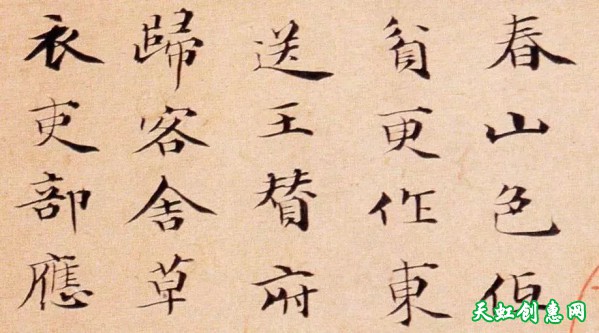 春山色伍
貧更作東
送王贊府
歸客舍草
衣吏部應
天虹创惠网